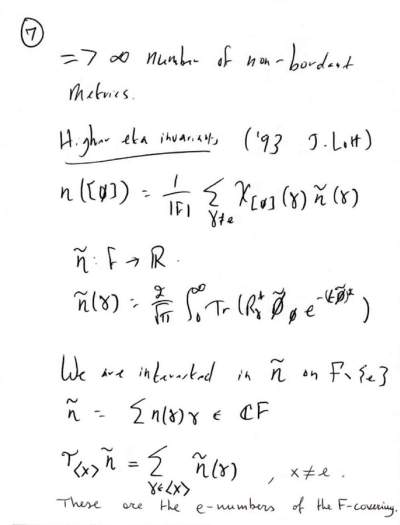 7
=> ∞ number of non-bordant
metrics.
Higher eta invariants ('93 J. Lott)
η([ø]) = 1/|F| Σ_{γ≠e} χ_{[ø]}(γ) η̃(γ)
η̃ : F → ℝ.
η̃(γ) = 2/√π ∫_0^∞ Tr (R_γ^*
We are interested in η̃ on F∖{e}
η̃ = Σ η(γ)γ ∈ ℂF
τ_{<x>} η̃ = Σ_{γ∈<x>} η̃(γ) , x≠e.
These are the e-numbers of the F-covering.